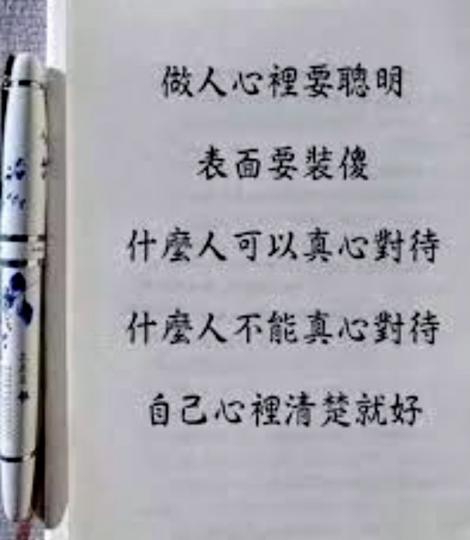 做人心裡要聰明
表面要裝傻
什麼人可以真心對待
什麼人不能真心對待
自己心裡清楚就好